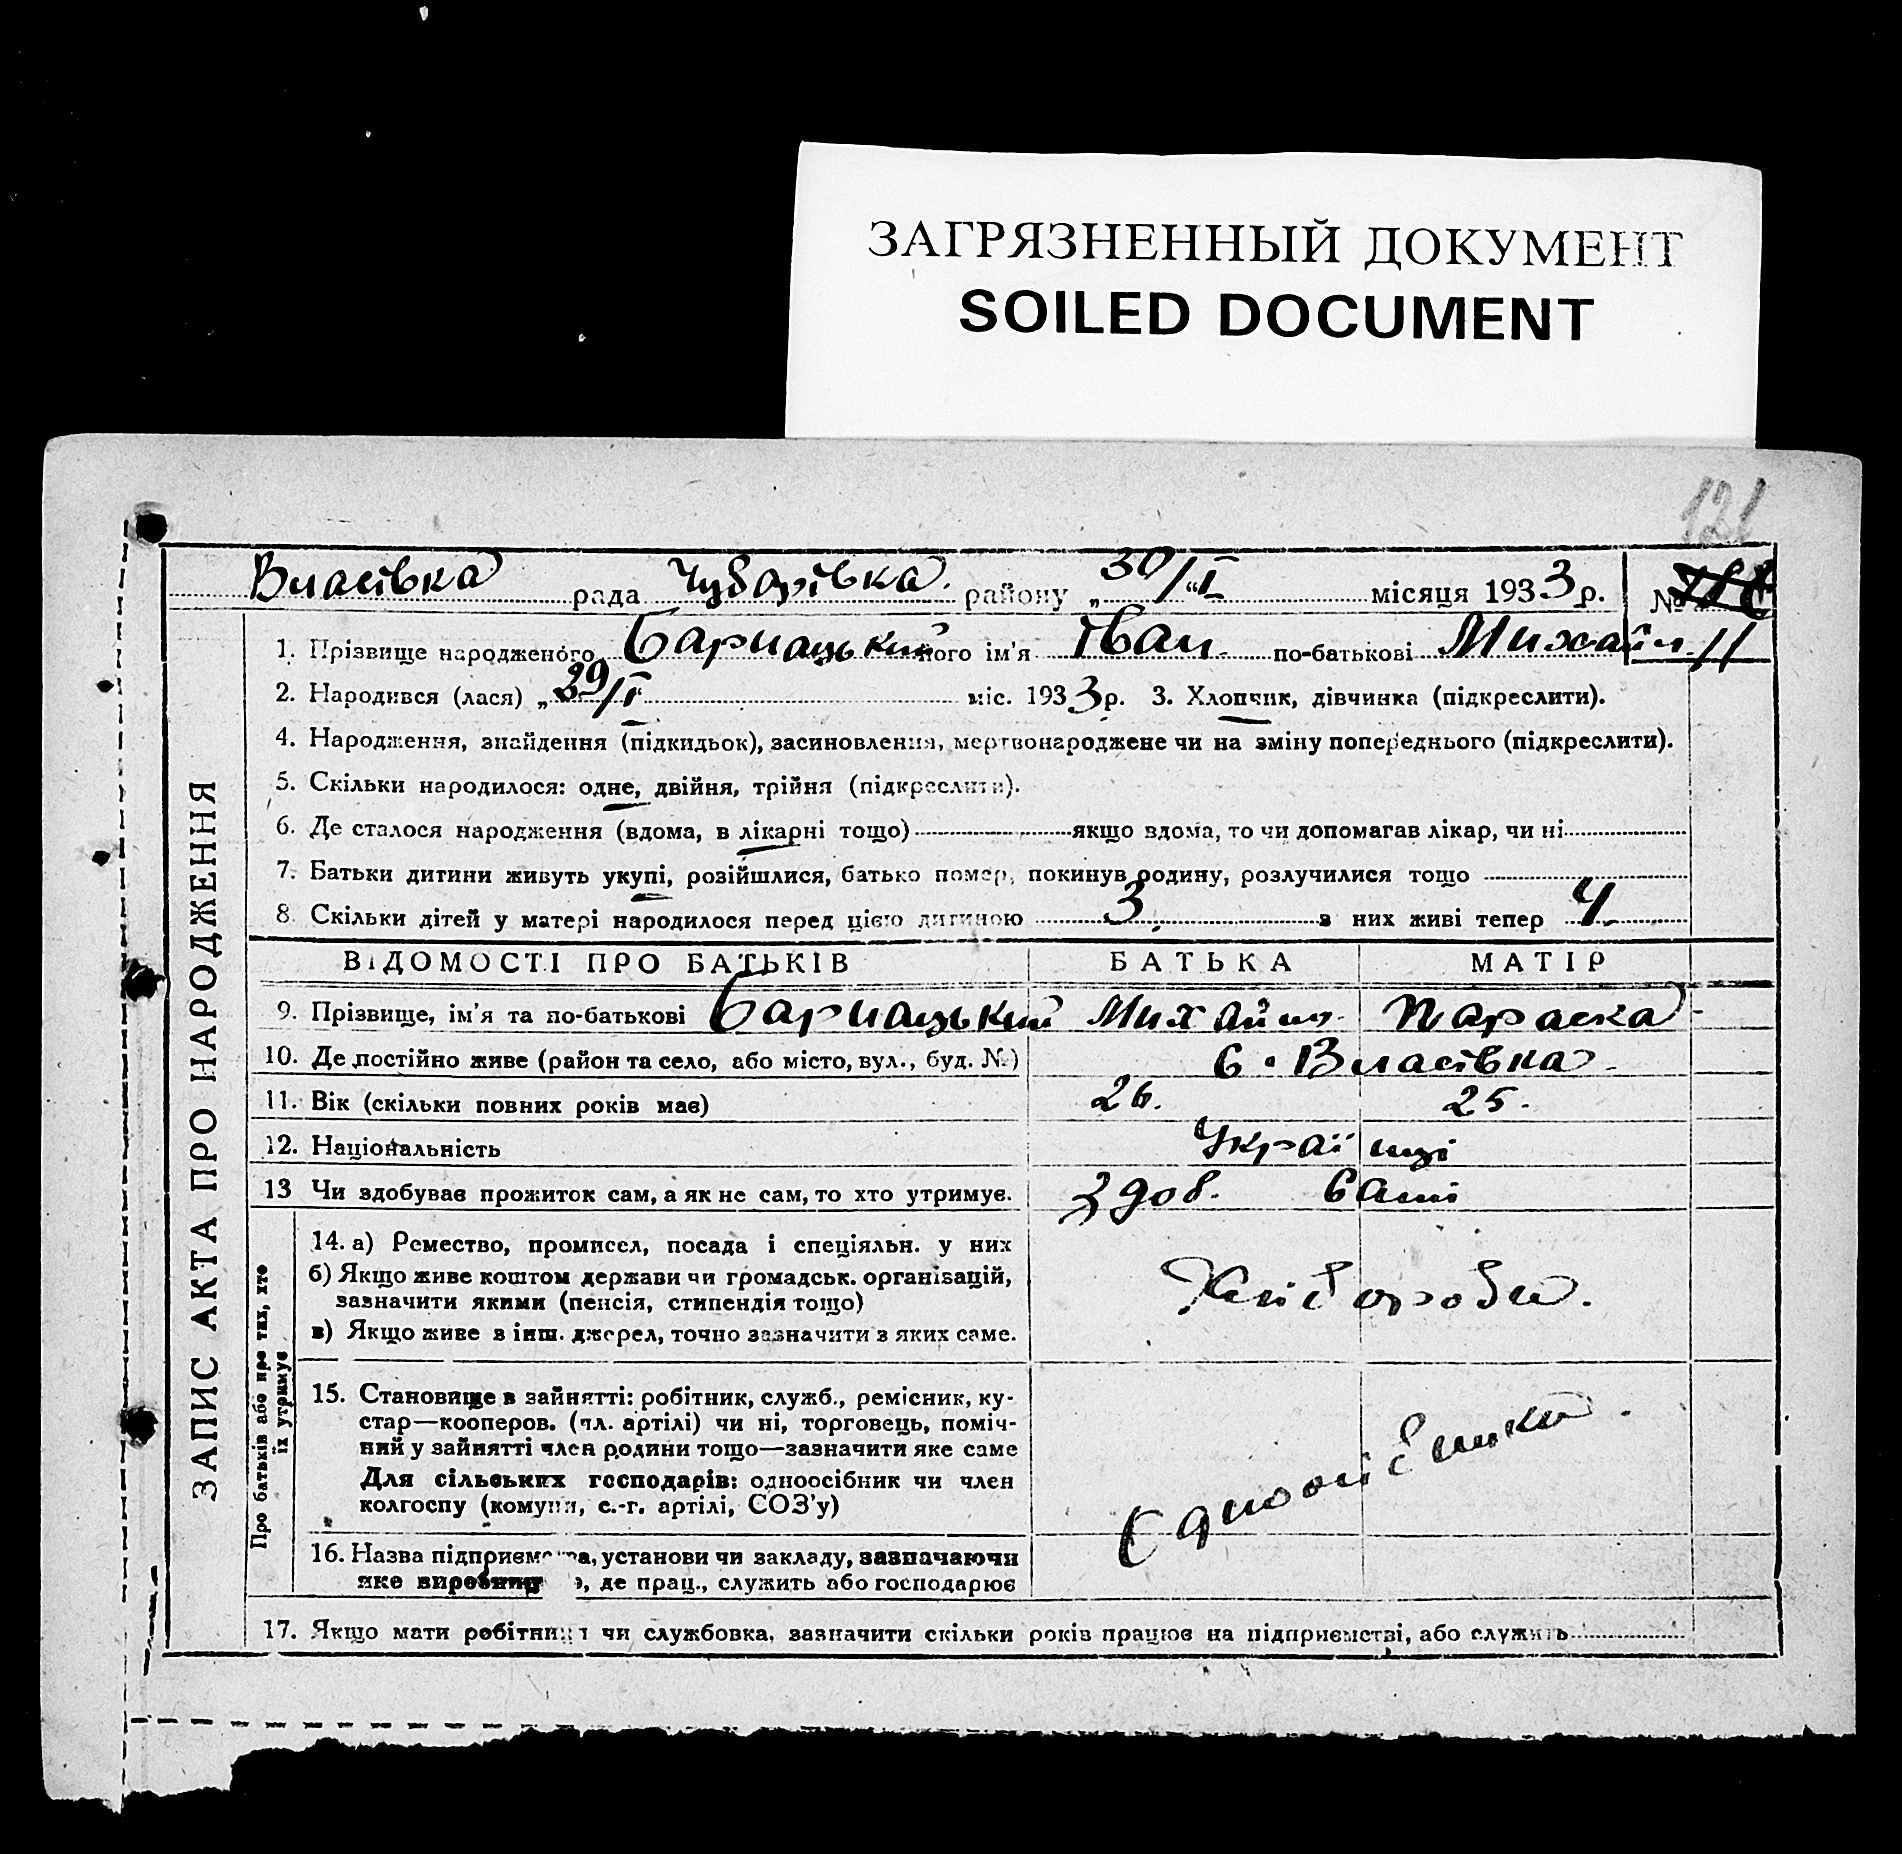 ЗАГРЯЗНЕННЫЙ ДОКУМЕНТ
SOILED DOCUMENT
121
Власівка рада Чубарівка району „30/“ I місяця 1933 р. №
11
ЗАПИС АКТА ПРО НАРОДЖЕННЯ
1. Прізвище народженого Барнацький його ім'я Іван по-батькові Михайл.
2. Народився (лася) „29/I міс. 1933 р. 3. Хлопчик, дівчинка (підкреслити).
4. Народження, знайдення (підкидьок), засиновлення, мертвонароджене чи на зміну попереднього (підкреслити).
5. Скільки народилося: одне, двійня, трійня (підкреслити).
6. Де сталося народження (вдома, в лікарні тощо) якщо вдома, то чи допомагав лікар, чи ні
7. Батьки дитини живуть укупі, розійшлися, батько помер, покинув родину, розлучилися тощо
8. Скільки дітей у матері народилося перед цією дитиною 3. з них живі тепер 4
ВІДОМОСТІ ПРО БАТЬКІВ БАТЬКА МАТІР
9. Прізвище, ім'я та по-батькові Барнацький Михайло Параска
10. Де постійно живе (район та село, або місто, вул., буд. №) с. Власівка
11. Вік (скільки повних років має) 26. 25.
12. Національність Українці
13 Чи здобував прожиток сам, а як не сам, то хто утримує. Здоб. самі
Про батьків або про тих, хто
їх утримує
14. а) Ремество, промисел, посада і спеціяльн. у них
б) Якщо живе коштом держави чи громадськ. організацій,
зазначити якими (пенсія, стипендія тощо)
в) Якщо живе з інш. джерел, точно зазначити з яких саме.
Хлібороби.
15. Становище в зайнятті: робітник, служб., ремісник, ку-
стар—кооперов. (чл. артілі) чи ні, торговець, поміч-
ний у зайнятті член родини тощо—зазначити яке саме
Для сільських господарів: одноосібник чи член
колгоспу (комуни, с.-г. артілі, СОЗ'у)
Одноосібники.
16. Назва підприємства, установи чи закладу, зазначаючи
яке виробниц , де прац., служить або господарює
17. Якщо мати робітниця чи службовка, зазначити скільки років працює на підприємстві, або служить